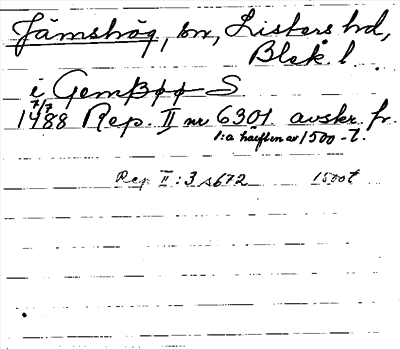 Jämshög, sn, Listers hd,
Blek. l.
i Gemßøø S
7/7
1488 Rep. II nr 6301. avskr. fr.
1:a hälften av 1500-t.
Rep II:3 s 672 1500t